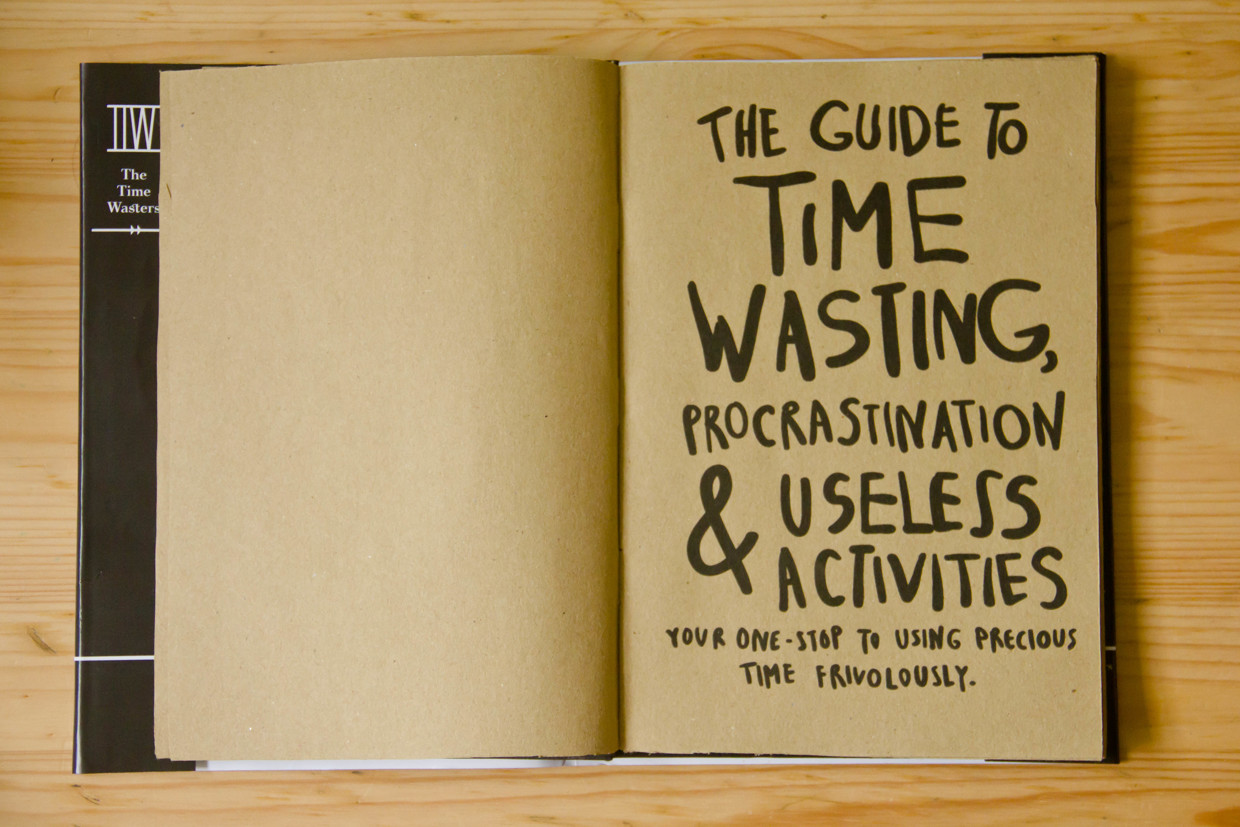 The
Time
Wasters
THE GUIDE TO
TIME
WASTING,
PROCRASTINATION
& USELESS
ACTIVITIES
YOUR ONE-STOP TO USING PRECIOUS
TIME FRIVOLOUSLY.